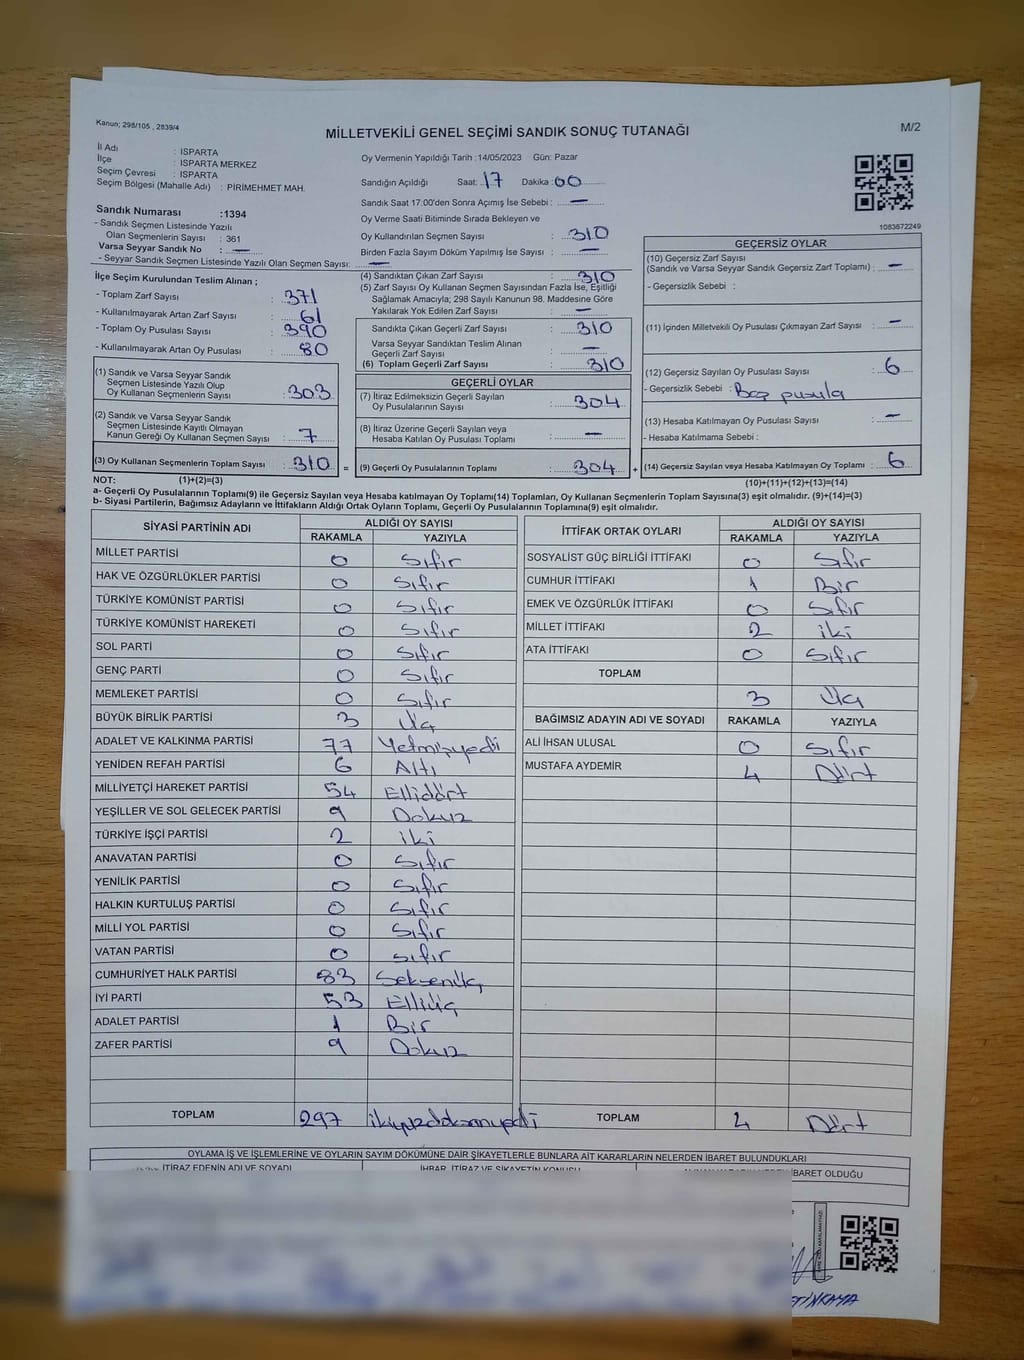 Kanun; 298/105 , 2839/4
MİLLETVEKİLİ GENEL SEÇİMİ SANDIK SONUÇ TUTANAĞI
M/2
İl Adı : ISPARTA
İlçe : ISPARTA MERKEZ
Seçim Çevresi : ISPARTA
Seçim Bölgesi (Mahalle Adı) : PİRİMEHMET MAH.
Sandık Numarası :1394
- Sandık Seçmen Listesinde Yazılı
Olan Seçmenlerin Sayısı : 361
Varsa Seyyar Sandık No : —
- Seyyar Sandık Seçmen Listesinde Yazılı Olan Seçmen Sayısı: —
Oy Vermenin Yapıldığı Tarih :14/05/2023 Gün: Pazar
Sandığın Açıldığı Saat: 17 Dakika: 00
Sandık Saat 17.00'den Sonra Açımış İse Sebebi : —
Oy Verme Saati Bitiminde Sırada Bekleyen ve
Oy Kullandırılan Seçmen Sayısı : 310
Birden Fazla Sayım Döküm Yapılmış İse Sayısı : —
1083672249
İlçe Seçim Kurulundan Teslim Alınan ;
- Toplam Zarf Sayısı : 371
- Kullanılmayarak Artan Zarf Sayısı : 61
- Toplam Oy Pusulası Sayısı : 390
- Kullanılmayarak Artan Oy Pusulası : 80
(1) Sandık ve Varsa Seyyar Sandık
Seçmen Listesinde Yazılı Olup
Oy Kullanan Seçmenlerin Sayısı : 303
(2) Sandık ve Varsa Seyyar Sandık
Seçmen Listesinde Kayıtlı Olmayan
Kanun Gereği Oy Kullanan Seçmen Sayısı : 7
(3) Oy Kullanan Seçmenlerin Toplam Sayısı : 310 =
(4) Sandıktan Çıkan Zarf Sayısı : 310
(5) Zarf Sayısı Oy Kullanan Seçmen Sayısından Fazla İse, Eşitliği
Sağlamak Amacıyla; 298 Sayılı Kanunun 98. Maddesine Göre
Yakılarak Yok Edilen Zarf Sayısı : —
Sandıkta Çıkan Geçerli Zarf Sayısı : 310
Varsa Seyyar Sandıktan Teslim Alınan
Geçerli Zarf Sayısı : —
(6) Toplam Geçerli Zarf Sayısı : 310
GEÇERLİ OYLAR
(7) İtiraz Edilmeksizin Geçerli Sayılan
Oy Pusulalarının Sayısı : 304
(8) İtiraz Üzerine Geçerli Sayılan veya
Hesaba Katılan Oy Pusulası Toplamı : —
(9) Geçerli Oy Pusulalarının Toplamı : 304 +
GEÇERSİZ OYLAR
(10) Geçersiz Zarf Sayısı
(Sandık ve Varsa Seyyar Sandık Geçersiz Zarf Toplamı) : —
- Geçersizlik Sebebi :
(11) İçinden Milletvekili Oy Pusulası Çıkmayan Zarf Sayısı : —
(12) Geçersiz Sayılan Oy Pusulası Sayısı : 6
- Geçersizlik Sebebi : Boş pusula
(13) Hesaba Katılmayan Oy Pusulası Sayısı : —
- Hesaba Katılmama Sebebi :
(14) Geçersiz Sayılan veya Hesaba Katılmayan Oy Toplamı : 6
NOT: (1)+(2)=(3) (10)+(11)+(12)+(13)=(14)
a- Geçerli Oy Pusulalarının Toplamı(9) ile Geçersiz Sayılan veya Hesaba katılmayan Oy Toplamı(14) Toplamları, Oy Kullanan Seçmenlerin Toplam Sayısına(3) eşit olmalıdır. (9)+(14)=(3)
b- Siyasi Partilerin, Bağımsız Adayların ve İttifakların Aldığı Ortak Oyların Toplamı, Geçerli Oy Pusulalarının Toplamına(9) eşit olmalıdır.
SİYASİ PARTİNİN ADI ALDIĞI OY SAYISI
RAKAMLA YAZIYLA
MİLLET PARTİSİ 0 Sıfır
HAK VE ÖZGÜRLÜKLER PARTİSİ 0 Sıfır
TÜRKİYE KOMÜNİST PARTİSİ 0 Sıfır
TÜRKİYE KOMÜNİST HAREKETİ 0 Sıfır
SOL PARTİ 0 Sıfır
GENÇ PARTİ 0 Sıfır
MEMLEKET PARTİSİ 0 Sıfır
BÜYÜK BİRLİK PARTİSİ 3 Üç
ADALET VE KALKINMA PARTİSİ 77 Yetmişyedi
YENİDEN REFAH PARTİSİ 6 Altı
MİLLİYETÇİ HAREKET PARTİSİ 54 Ellidört
YEŞİLLER VE SOL GELECEK PARTİSİ 9 Dokuz
TÜRKİYE İŞÇİ PARTİSİ 2 iki
ANAVATAN PARTİSİ 0 Sıfır
YENİLİK PARTİSİ 0 Sıfır
HALKIN KURTULUŞ PARTİSİ 0 Sıfır
MİLLİ YOL PARTİSİ 0 Sıfır
VATAN PARTİSİ 0 Sıfır
CUMHURİYET HALK PARTİSİ 83 Seksenüç
İYİ PARTİ 53 Elliüç
ADALET PARTİSİ 1 Bir
ZAFER PARTİSİ 9 Dokuz
TOPLAM 297 ikiyüzdoksanyedi
İTTİFAK ORTAK OYLARI ALDIĞI OY SAYISI
RAKAMLA YAZIYLA
SOSYALİST GÜÇ BİRLİĞİ İTTİFAKI 0 Sıfır
CUMHUR İTTİFAKI 1 Bir
EMEK VE ÖZGÜRLÜK İTTİFAKI 0 Sıfır
MİLLET İTTİFAKI 2 iki
ATA İTTİFAKI 0 Sıfır
TOPLAM 3 Üç
BAĞIMSIZ ADAYIN ADI VE SOYADI RAKAMLA YAZIYLA
ALİ İHSAN ULUSAL 0 Sıfır
MUSTAFA AYDEMİR 4 Dört
TOPLAM 4 Dört
OYLAMA İŞ VE İŞLEMLERİNE VE OYLARIN SAYIM DÖKÜMÜNE DAİR ŞİKAYETLERLE BUNLARA AİT KARARLARIN NELERDEN İBARET BULUNDUKLARI
İTİRAZ EDENİN ADI VE SOYADI İHBAR, İTİRAZ VE ŞİKAYETİN KONUSU İBARET OLDUĞU